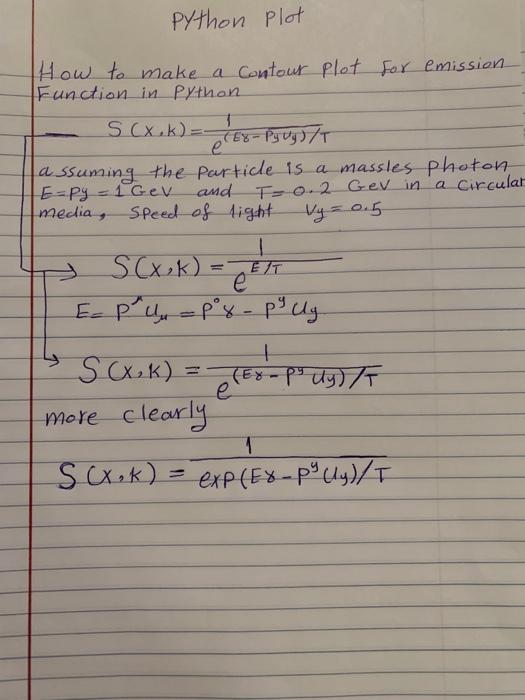 Python Plot
How to make a Contour Plot for emission
Function in Python
S(x,k) = 1 / e^(Eγ - Pyuy)/T
assuming the Particle is a massles Photon
E=Py = 1 GeV and T= 0.2 GeV in a Circular
media, Speed of light Vy = 0.5
S(x,k) = 1 / e^E/T
E = P^μ u_μ = P°γ - P^y uy
S(x,k) = 1 / e^(Eγ - P^y uy)/T
more clearly
S(x,k) = 1 / exp(Eγ - P^y uy)/T